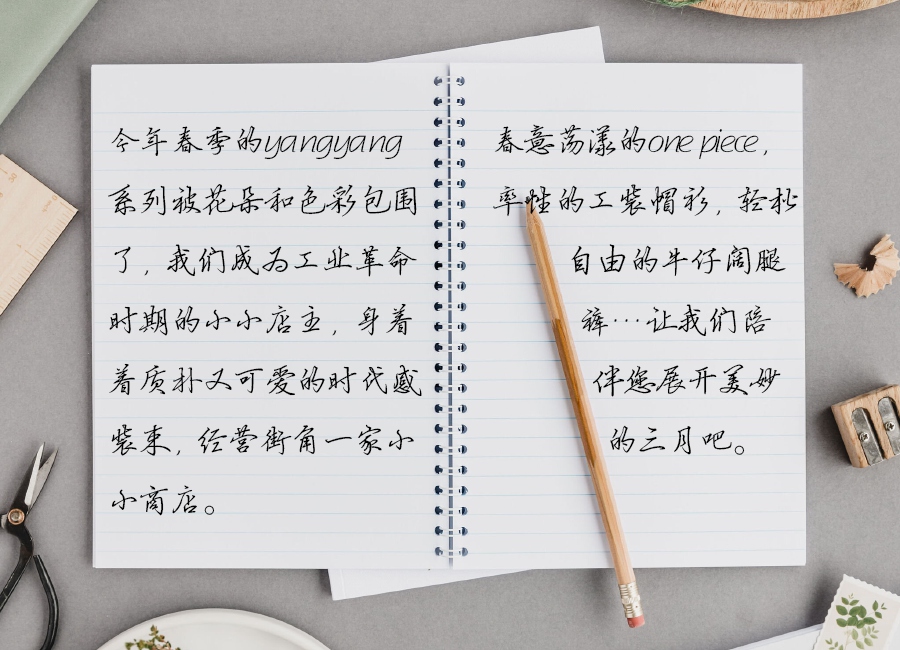 今年春季的yangyang
系列被花朵和色彩包围
了，我们成为工业革命
时期的小小店主，身着
着质朴又可爱的时代感
装束，经营街角一家小
小商店。
春意荡漾的one piece，
率性的工装帽衫，轻松
自由的牛仔阔腿
裤…让我们陪
伴您展开美妙
的三月吧。